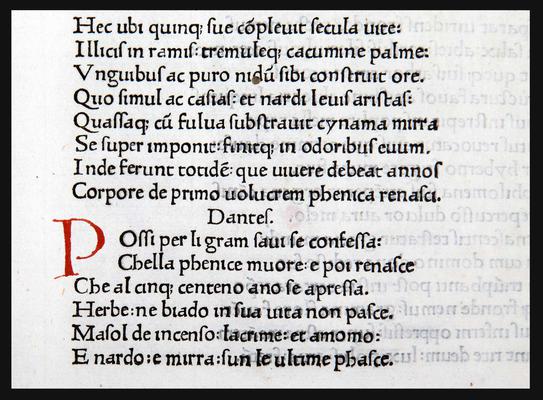 Hec ubi quinq; sue cōpleuit secula uite:
Illicis in ramis: tremuleq; cacumine palme:
Vnguibus ac puro nidū sibi construit ore.
Quo simul ac casias: et nardi leuis aristas:
Quassaq; cū fulua substrauit cynama mirra
Se super imponit: finitq; in odoribus euum.
Inde ferunt totidē: que uiuere debeat annos
Corpore de primo uolucrem phenica renasci.
Dantes.
POssi per li gram saui se confessa:
Chella phenice muore: e poi renasce
Che al cinq; centeno ano se apressa.
Herbe: ne biado in sua uita non pasce.
Ma sol de incenso: lacrime: et amomo:
E nardo: e mirra: sun le ultime phasce.